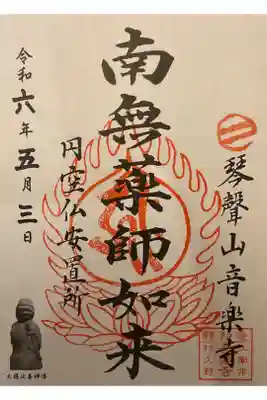 琴聲山音楽寺
南無薬師如来
円空仏安置所
令和六年五月三日